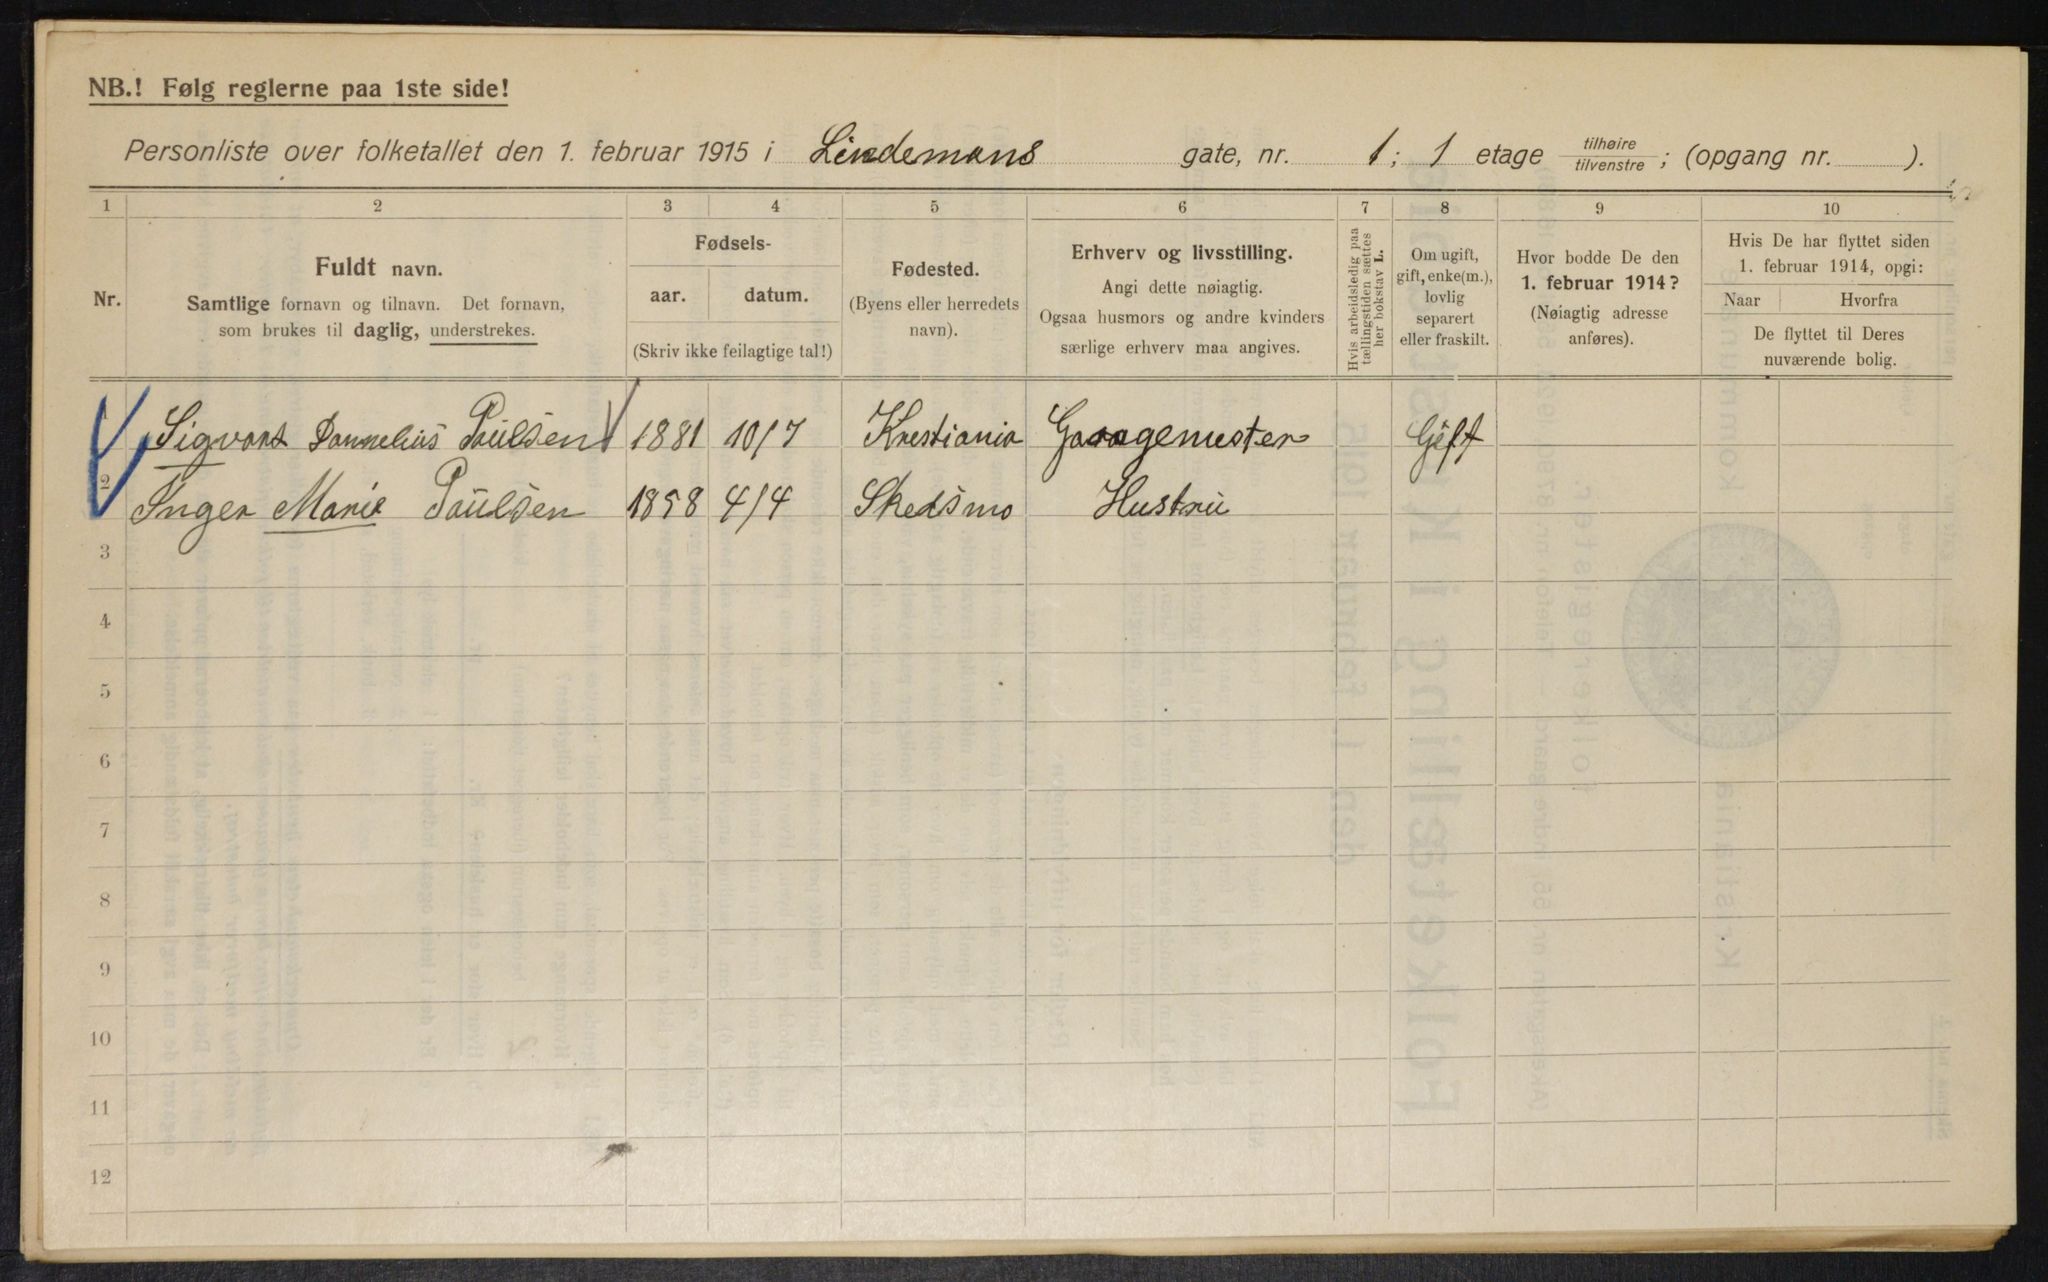 NB.! Følg reglerne paa 1ste side!
Personliste over folketallet den 1. februar 1915 i Lindemans gate, nr. 1; 1 etage tilhøire tilvenstre; (opgang nr. ).
1 2 3 4 5 6 7 8 9 10
Nr.
Fuldt navn.
Samtlige fornavn og tilnavn. Det fornavn,
som brukes til daglig, understrekes.
Fødsels-
aar. datum.
(Skriv ikke feilagtige tal!)
Fødested.
(Byens eller herredets
navn).
Erhverv og livsstilling.
Angi dette nøiagtig.
Ogsaa husmors og andre kvinders
særlige erhverv maa angives.
Hvis arbeidsledig paa
tællingstiden sættes
her bokstav L.
Om ugift,
gift, enke(m.),
lovlig
separert
eller fraskilt.
Hvor bodde De den
1. februar 1914?
(Nøiagtig adresse
anføres).
Hvis De har flyttet siden
1. februar 1914, opgi:
Naar Hvorfra
De flyttet til Deres
nuværende bolig.
Sigvart Paulsen 1881 10/7 Krestiania Garagemester Gift
2 Inger Marie Paulsen 4/4 Skedsmo Hustru
3
4
5
6
7
8
9
10
11
12